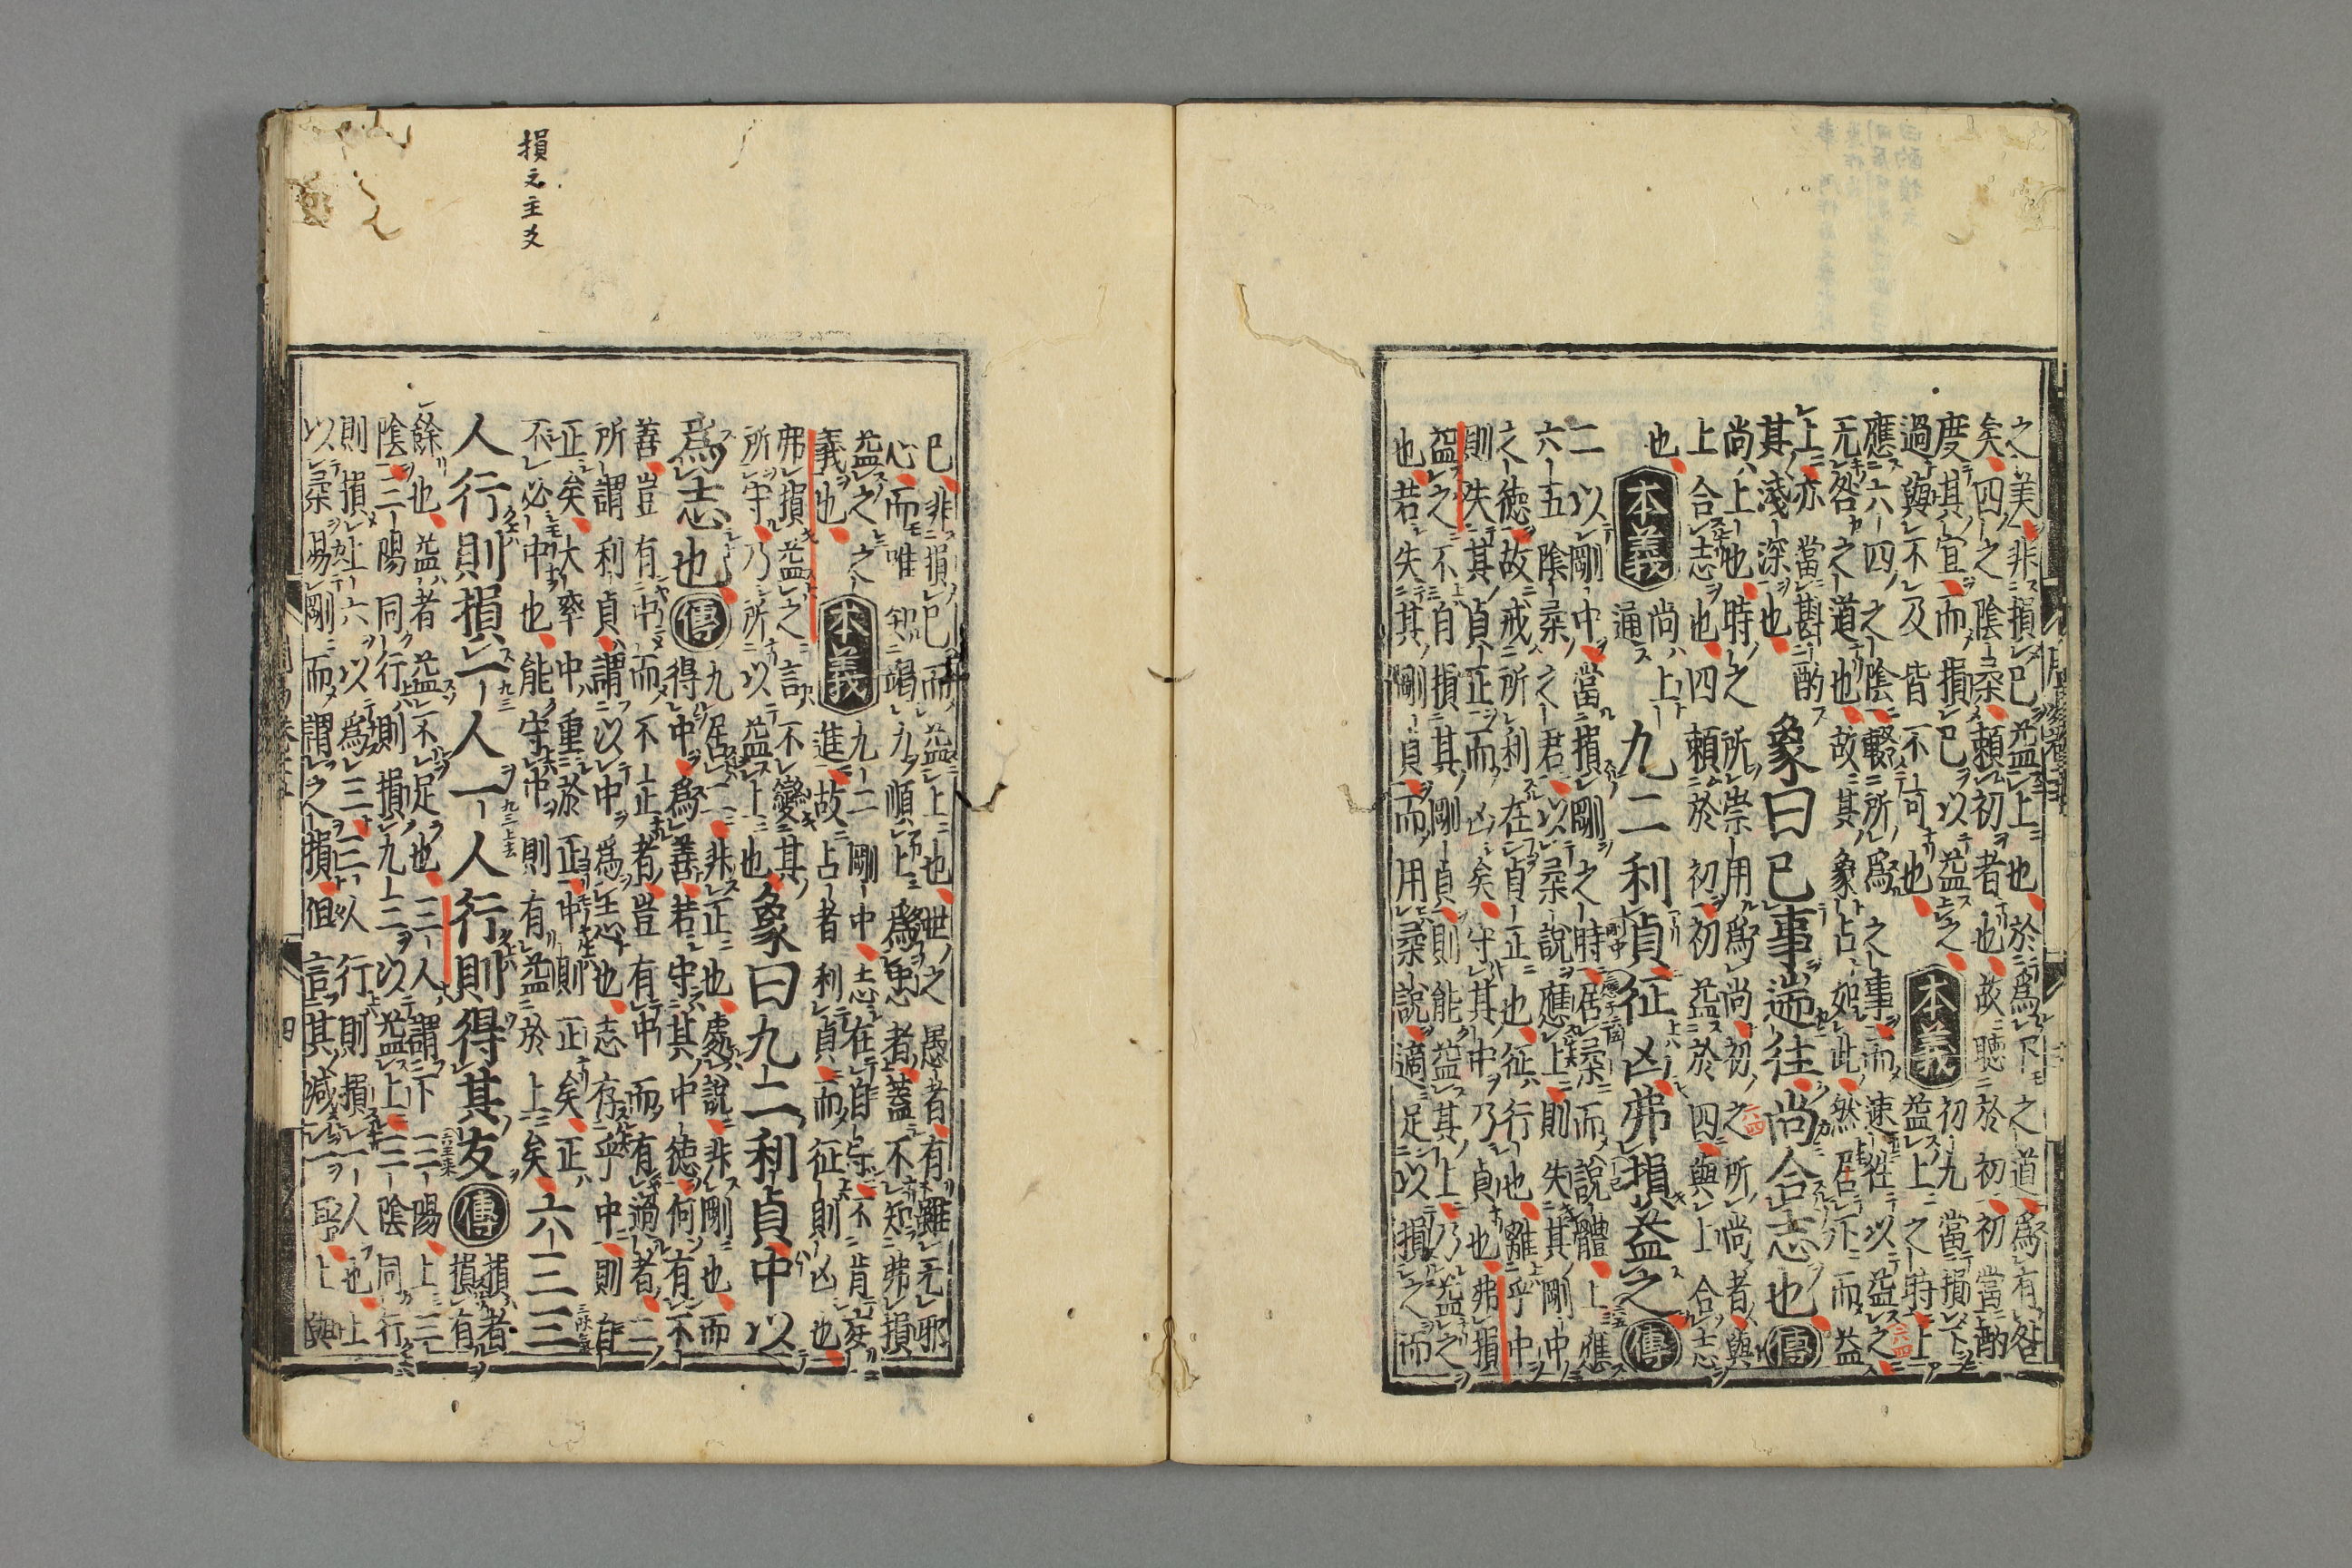 之美非損己益上也於爲下之道爲有咎
矣四之陰柔賴初者也故聽於初初當酌
度其宜而損己以益之
過與不及皆不可也
本義
初九當損下
益上之時上
應六四之陰輟所爲之事而速往以益之
无咎之道也故其象占如此然居下而益
上亦當斟酌
其淺深也
象曰已事遄往尚合志也
傳
尚上也時之所崇用爲尚初之所尚者與
上合志也四賴於初初益於四與上合志
也
本義
尚上
通
九二利貞征凶弗損益之
傳
二以剛中當損剛之時居柔而說體上應
六五陰柔之君以柔說應上則失其剛中
之德故戒所利在貞正也征行也離乎中
則失其貞正而凶矣守其中乃貞也弗損
益之不自損其剛貞則能益其上乃益之
也若失其剛貞而用柔說適足以損之而
損之主爻
已非損己而益上也世之愚者有雖无邪
心而唯知竭力順上爲忠者蓋不知弗損
益之之
義也
本義
九二剛中志在自守不肯妄
進故占者利貞而征則凶也
弗損益之言不變其
所守乃所以益上也
象曰九二利貞中以
爲志也
傳
九居二非正也處說非剛也而
得中爲善若守其中德何有不
善豈有中而不正者豈有中而有過者二
所謂利貞謂以中爲志也志存乎中則自
正矣大率中重於正中則正矣正
不必中也能守中則有益於上矣
六三三
人行則損一人一人行則得其友
傳
損者
損有
餘也益者益不足也三人謂下三陽上三
陰三陽同行則損九三以益上三陰同行
則損上六以爲三三人行則損一人也上
以柔易剛而謂之損但言其減一耳上與